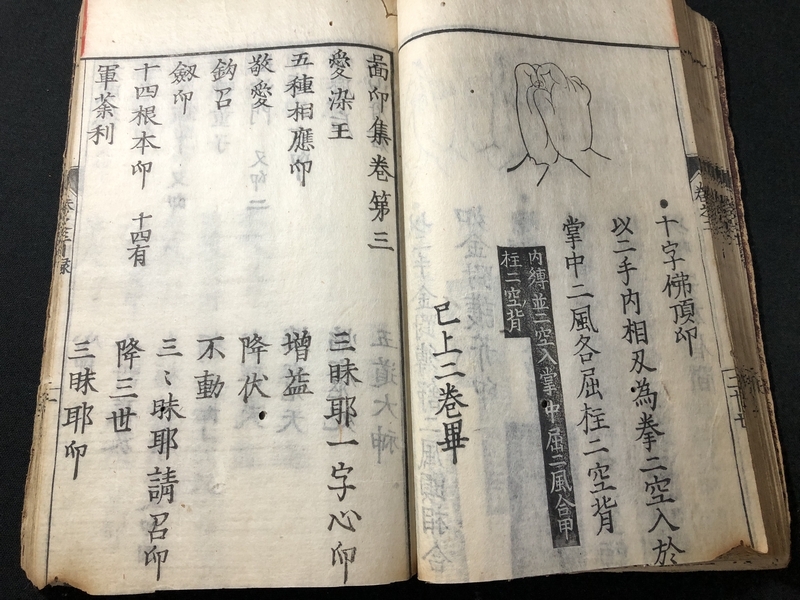 十字佛頂印
以二手内相叉為拳二空入於
掌中二風各屈柱二空背
内縛並二空入掌中屈二風合甲
柱二空背
已上二卷畢
啚印集卷第三
愛染王 三昧耶一字心印
五種相應印 増益
敬愛 降伏
鈎召 不動
劔印 三〻昧耶請召印
十四根本印 十四有 降三世
軍荼利 三昧耶印